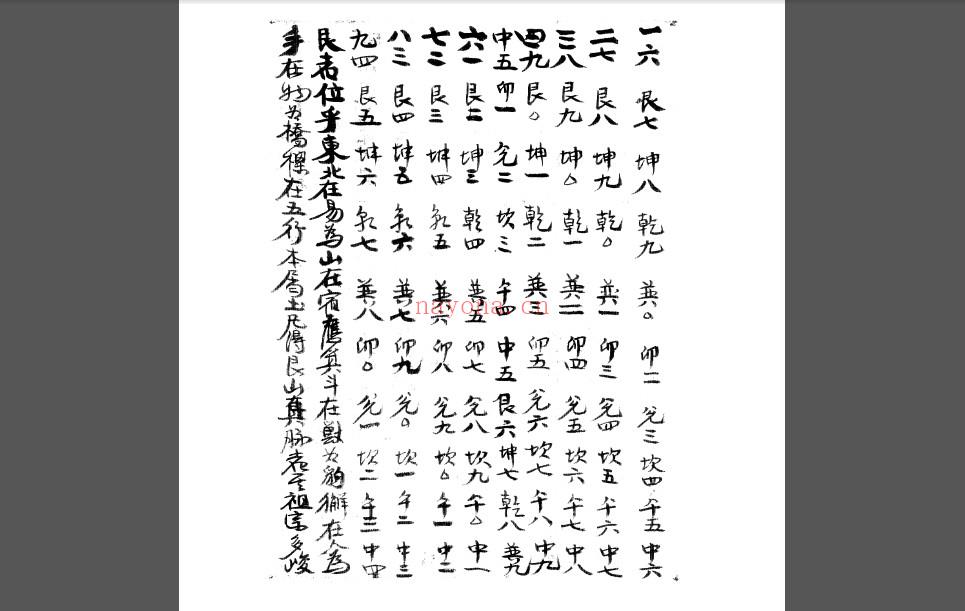 一六 艮七 坤八 乾九 巽〇 卯二 兊三 坎四 午五 中六
二七 艮八 坤九 乾〇 巽一 卯三 兊四 坎五 午六 中七
三八 艮九 坤〇 乾一 巽二 卯四 兊五 坎六 午七 中八
四九 艮〇 坤一 乾二 巽三 卯五 兊六 坎七 午八 中九
中五 卯一 兊二 坎三 午四 中五 艮六 坤七 乾八 巽九
六一 艮二 坤三 乾四 巽五 卯七 兊八 坎九 午〇 中一
七二 艮三 坤四 乾五 巽六 卯八 兊九 坎〇 午一 中二
八三 艮四 坤五 乾六 巽七 卯九 兊〇 坎一 午二 中三
九四 艮五 坤六 乾七 巽八 卯〇 兊一 坎二 午三 中四
艮者位乎東北在易為山在宿應箕斗在獸为豹獬在人為
手在物为橋樑在五行本属土凡得艮山真脉者其祖宗多峻
nayona.cn